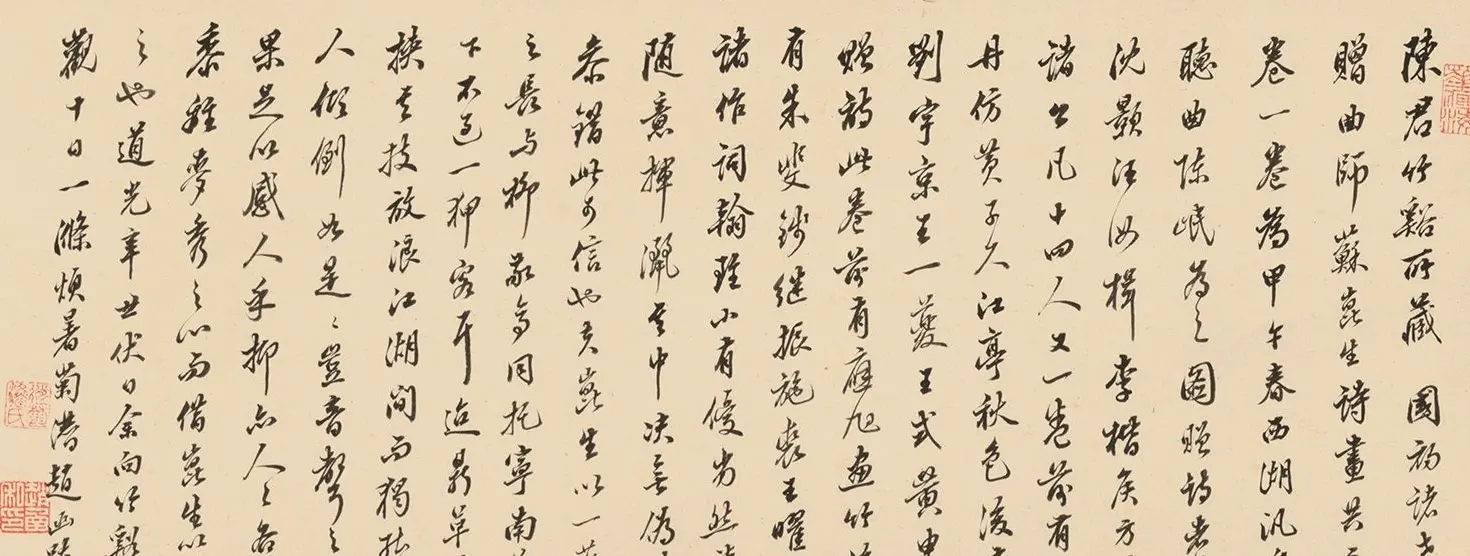 陳君竹谿所藏 國初諸
贈曲師蘇崑生詩畫共
卷一卷為甲午春西湖汎
聽曲陳岷為之圖贈詩者
沈顥汪汝楫李楷侯方
諸公凡十四人又一卷前有
丹仿黃子久江亭秋色後
劉宇京王一翥王式黃申
贈詩此卷前有應旭畫竹
有朱斐錢繼振施裘王曜
諸作詞翰雖小有優劣然
隨意揮灑其中決無偽
參錯此可信也夫崑生以一
之長与柳敬亭同托寧南
下不過一狎客耳迨鼎革
挾其技放浪江湖間而獨
人傾倒如是是豈音聲之
果足以感人乎抑亦人人各
黍離麥秀之心而借崑生以
之也道光辛丑伏日余向竹谿
觀十日一滌煩暑菊潛趙